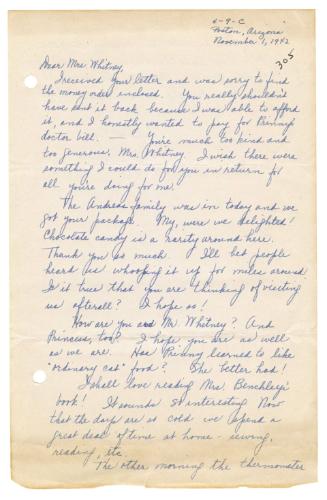 6-9-C
Poston, Arizona
November 1, 1942
305
Dear Mrs. Whitney,
I received your letter and was sorry to find
the money order enclosed. You really shouldn't
have sent it back because I was able to afford
it, and I honestly wanted to pay for Prinny's
doctor bill. — You're much too kind and
too generous, Mrs. Whitney. I wish there were
something I could do for you in return for
all you're doing for me!
The Andreas family was in today and we
got your package. My, were we delighted!
Chocolate candy is a rarity around here.
Thank you so much. I'll bet people
heard us whooping it up for miles around.
Is it true that you are thinking of visiting
us afterall? I hope so!
How are you and Mr. Whitney? And
Princess, too? I hope you are as well
as we are. Has Prinny learned to like
"ordinary cat" food? She better had!
I shall love reading Mrs. Benchley's
book! It sounds so interesting. Now
that the days are so cold we spend a
great deal of time at home - sewing,
reading, etc.
The other morning the thermometer